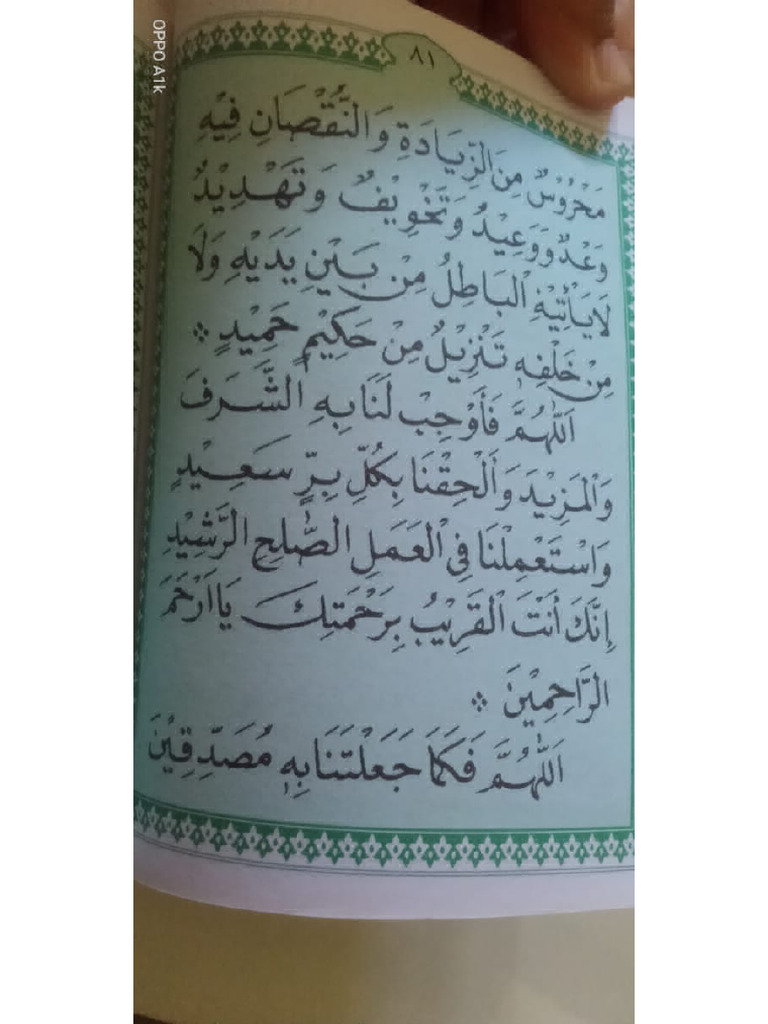 OPPO A1k
٨١
مَحْرُوْسٌ مِنَ الزِّيَادَةِ وَالنُّقْصَانِ فِيْهِ
وَعْدٌ وَوَعِيْدٌ وَتَخْوِيْفٌ وَتَهْدِيْدٌ
لَايَأْتِيْهِ الْبَاطِلُ مِنْ بَيْنِ يَدَيْهِ وَلَا
مِنْ خَلْفِهِ تَنْزِيْلٌ مِنْ حَكِيْمٍ حَمِيْدٍ
اَللّٰهُمَّ فَأَوْجِبْ لَنَابِهِ الشَّرَفَ
وَالْمَزِيْدَ وَأَلْحِقْنَا بِكُلِّ بِرٍّ سَعِيْدٍ
وَاسْتَعْمِلْنَا فِى الْعَمَلِ الصّٰلِحِ الرَّشِيْدِ
إِنَّكَ أَنْتَ الْقَرِيْبُ بِرَحْمَتِكَ يَااَرْحَمَ
الرَّاحِمِيْنَ
اَللّٰهُمَّ فَكَمَا جَعَلْتَنَابِهِ مُصَدِّقِيْنَ